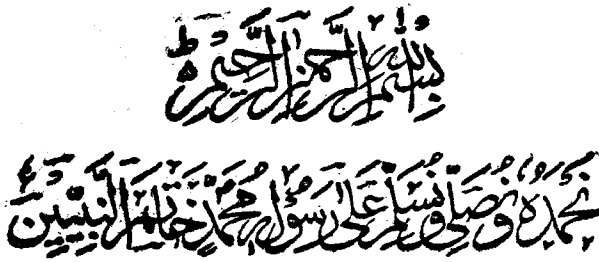 بِسْمِ اللهِ الرَّحْمٰنِ الرَّحِيْمِ ط
نَحْمَدُهٗ وَنُصَلِّىْ وَنُسَلِّمُ عَلٰى رَسُوْلِهٖ مُحَمَّدٍ خَاتَمِ النَّبِيّٖنَ